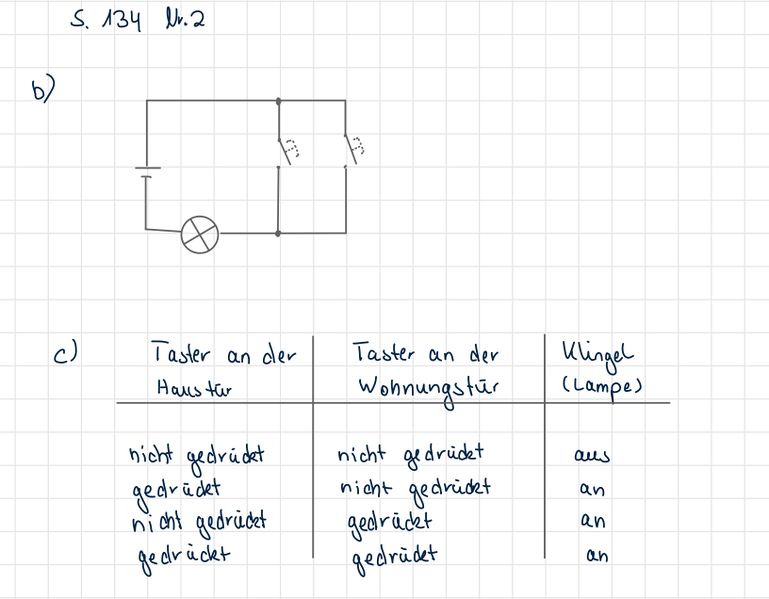 S. 134 Nr. 2
b)
c) Taster an der Haustür | Taster an der Wohnungstür | Klingel (Lampe)
nicht gedrückt | nicht gedrückt | aus
gedrückt | nicht gedrückt | an
nicht gedrückt | gedrückt | an
gedrückt | gedrückt | an